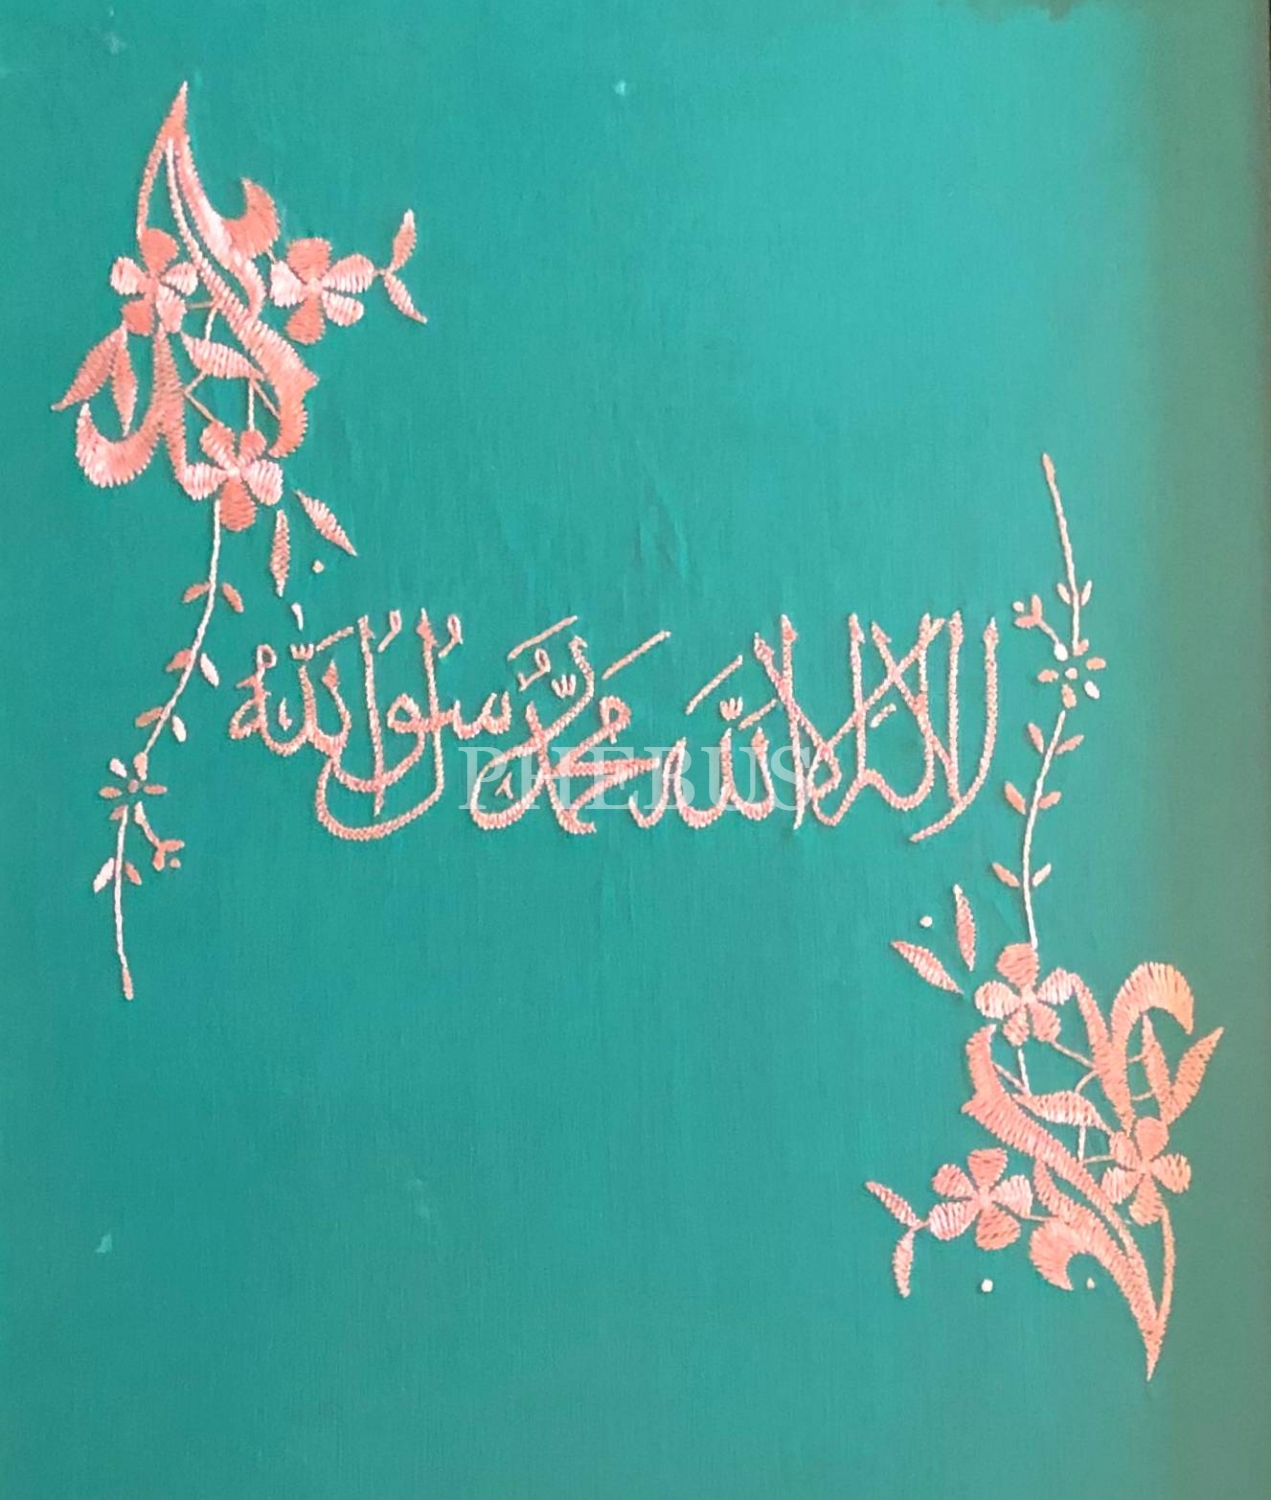 لا اله الا الله محمد رسول الله
PHEBUS